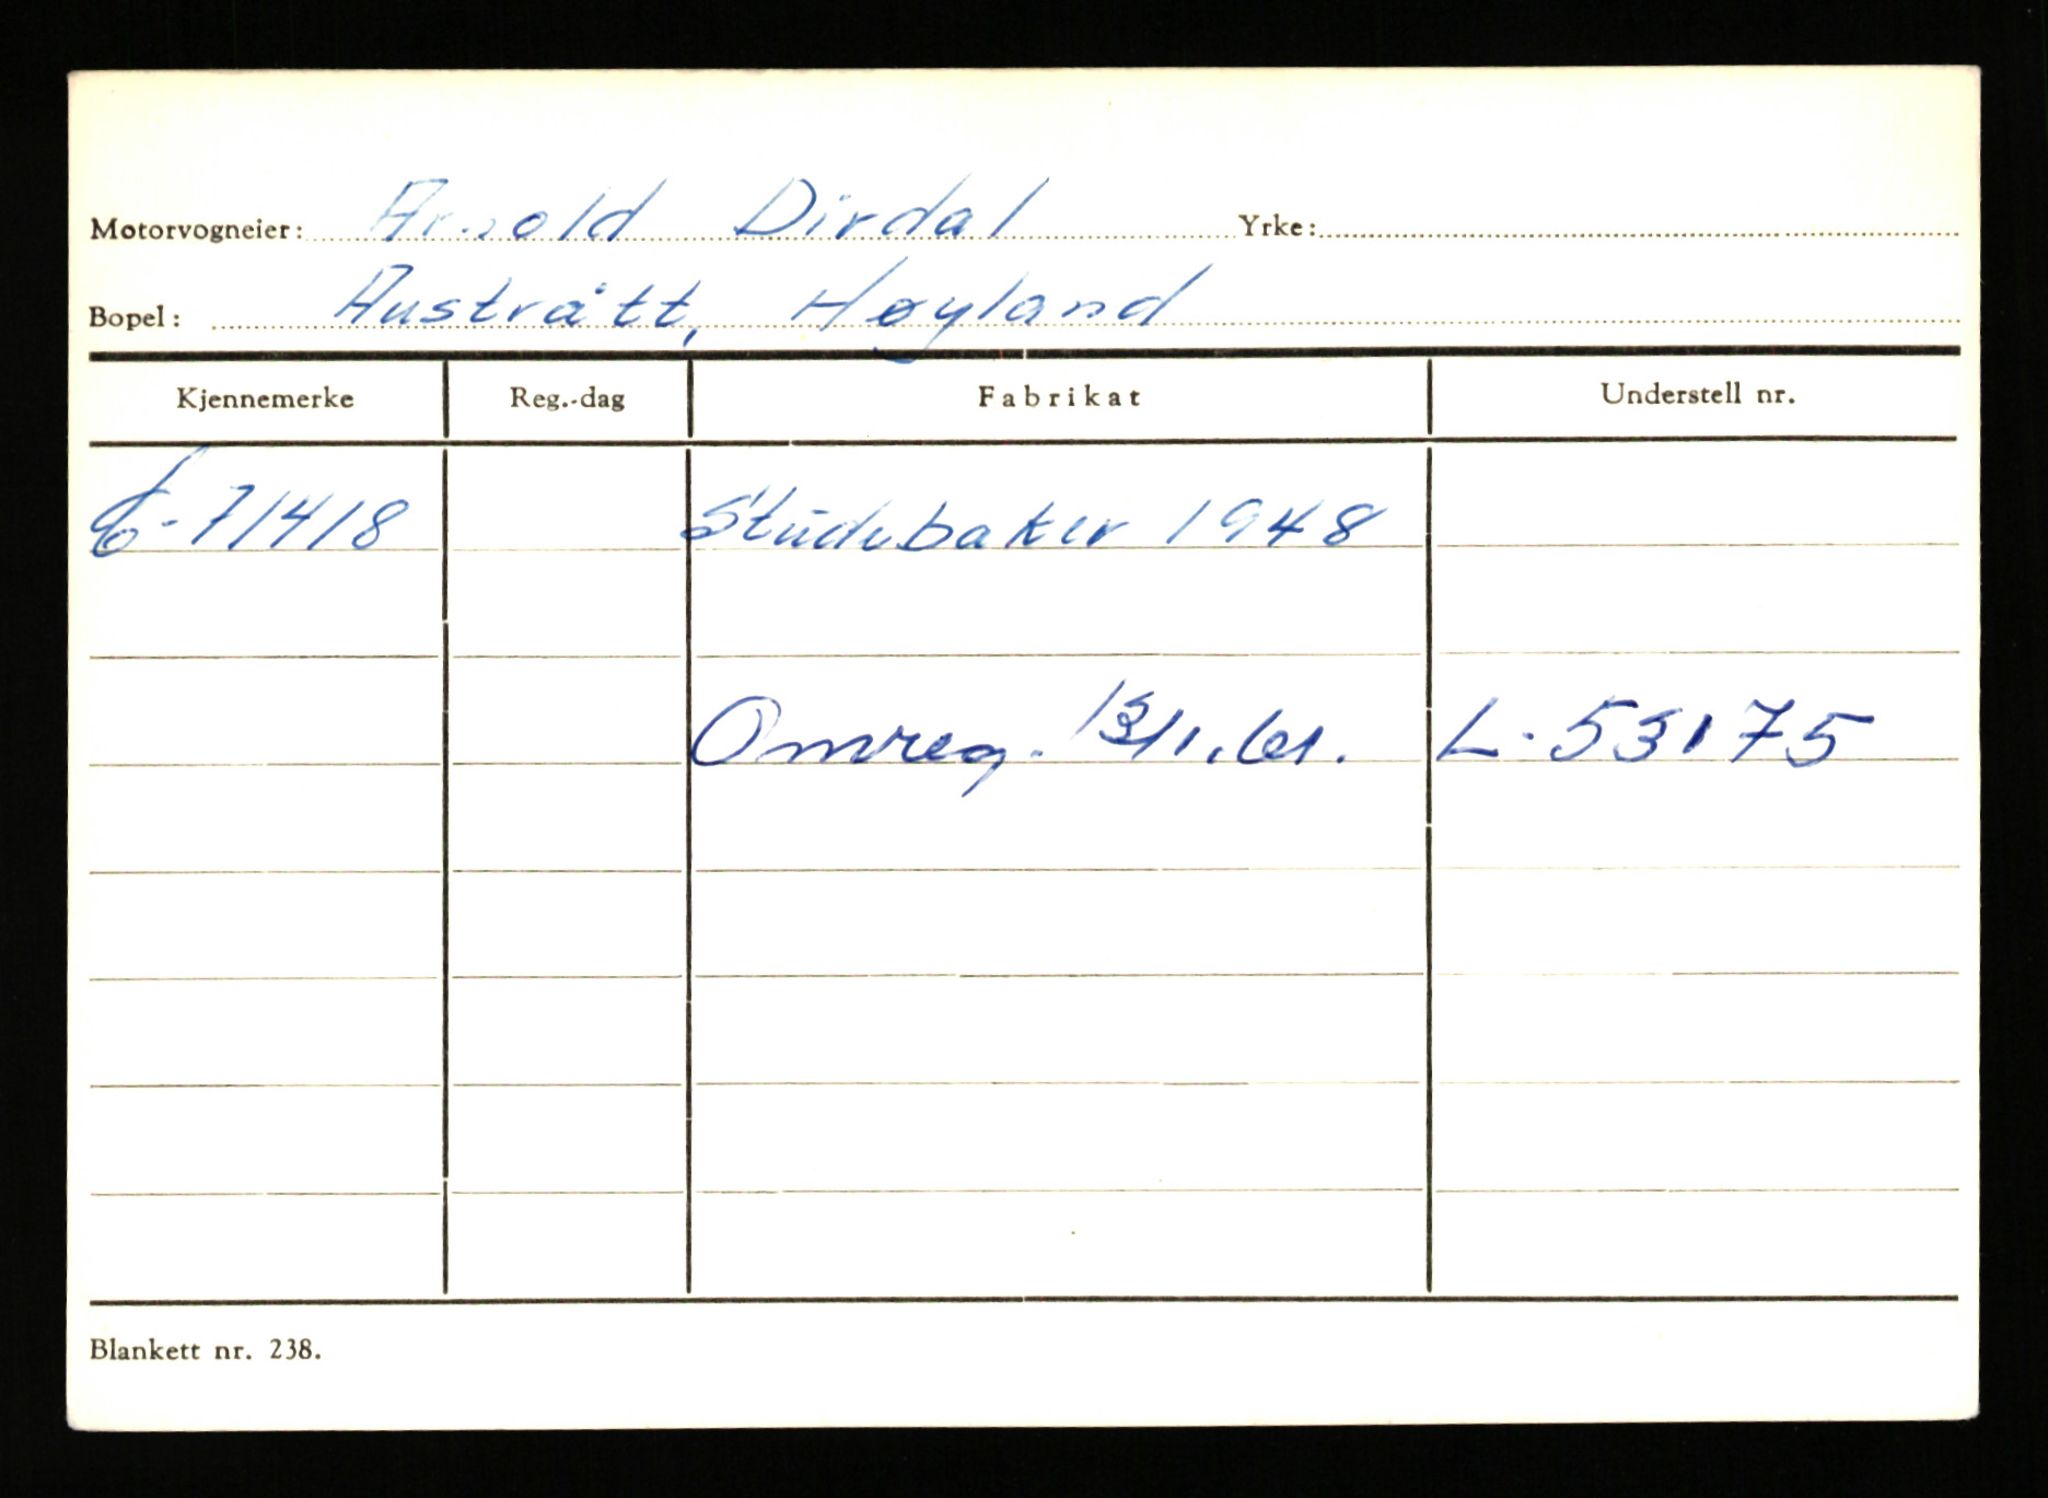 Motorvogneier: Arnold Dirdal Yrke:
Bopel: Austrått, Høyland
Kjennemerke Reg.-dag Fabrikat Understell nr.
L-71418 Studebaker 1948
Omreg. 13/1.61. L-53175
Blankett nr. 238.